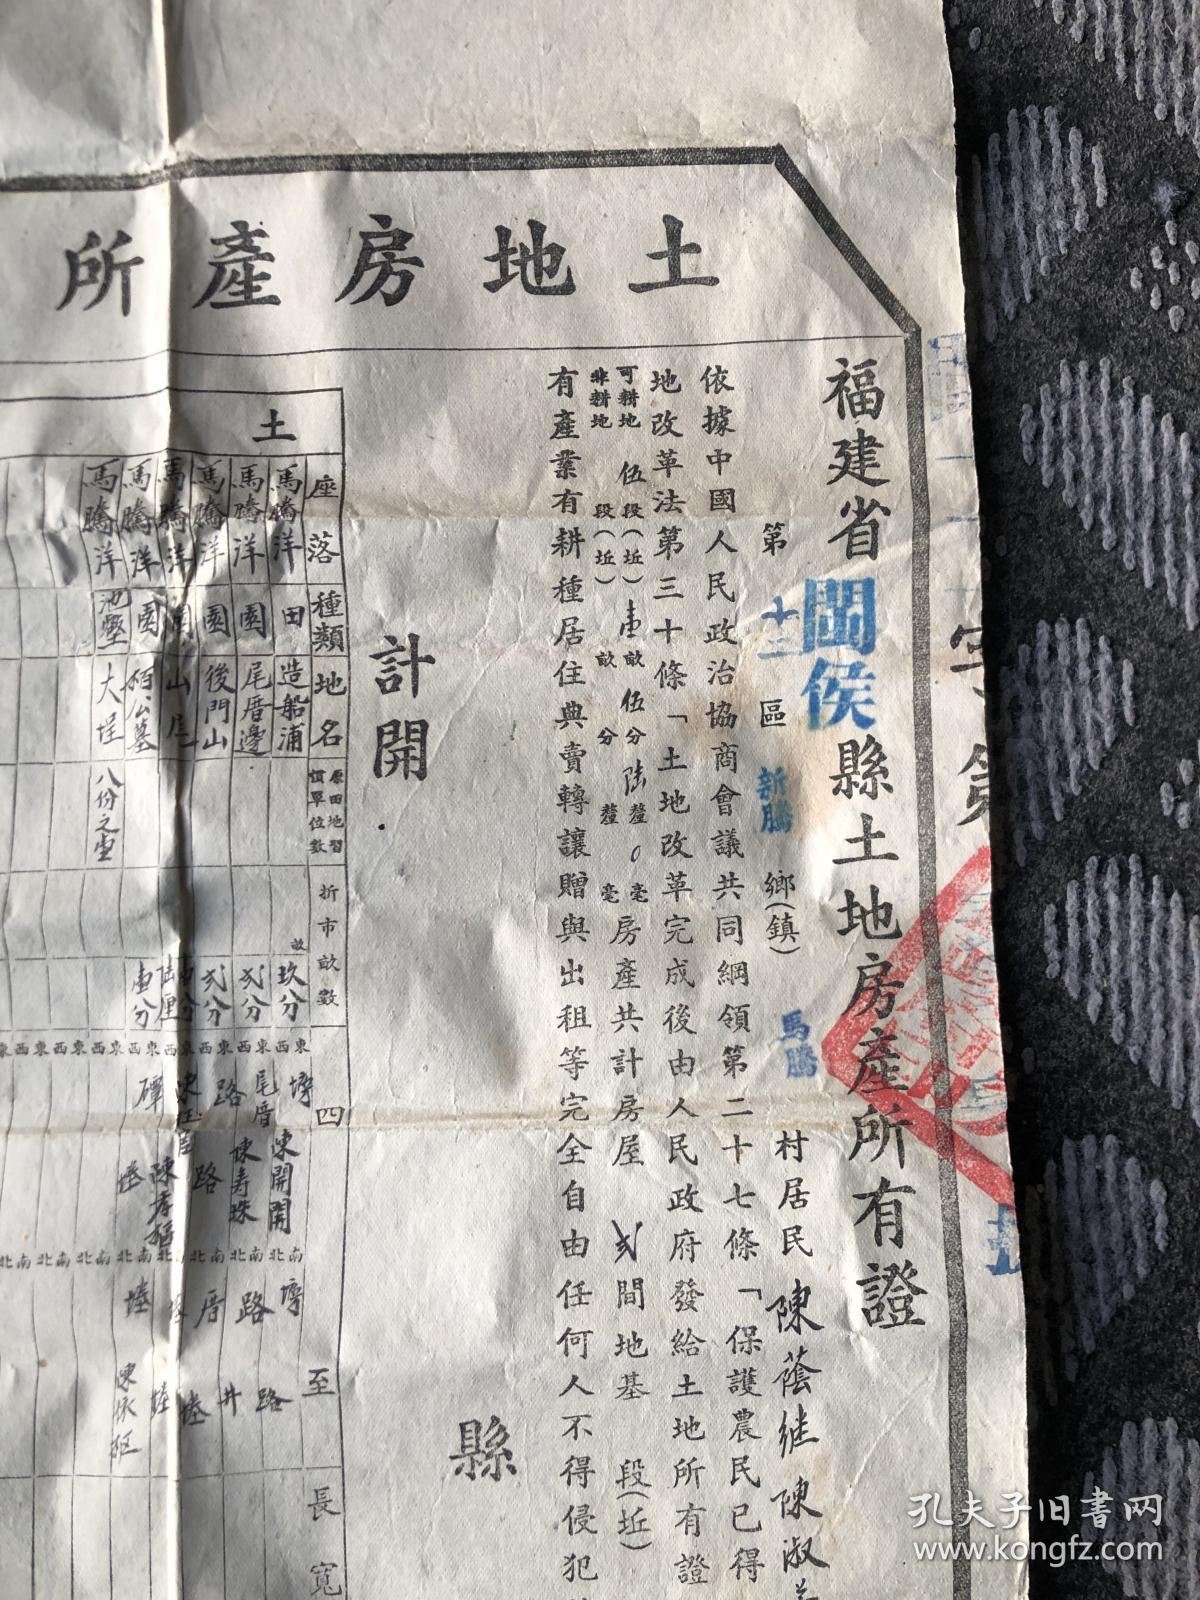 土地房產所
福建省閩侯縣土地房產所有證
第十二區新騰鄉(鎮)馬騰村居民陳蔭继陳淑
依據中國人民政治協商會議共同綱領第二十七條「保護農民已得
地改革法第三十條「土地改革完成後由人民政府發給土地所有證
可耕地伍段(坵)壹畝伍分陆釐0毫
非耕地段(坵)畝分釐毫
房產共計房屋弍間地基段(坵)
有產業有耕種居住典賣轉讓贈與出租等完全自由任何人不得侵犯
縣
計開
土
座落 種類 地名 原田地習慣單位數 折市畝數 四至 長寬
馬騰洋 田 造船浦 玖分 東 塝 西 陳開開 南 塝 北 路
馬騰洋 園 尾厝邊 弍分 東 尾厝 西 陳寿珠 南 路 北 井
馬騰洋 園 後門山 弍分 東 路 西 路 南 厝 北 墘
馬騰洋 山
馬騰洋 園 栢公墓 壹分
馬騰洋 池 大埕 八份之壹
孔夫子旧書网
www.kongfz.com